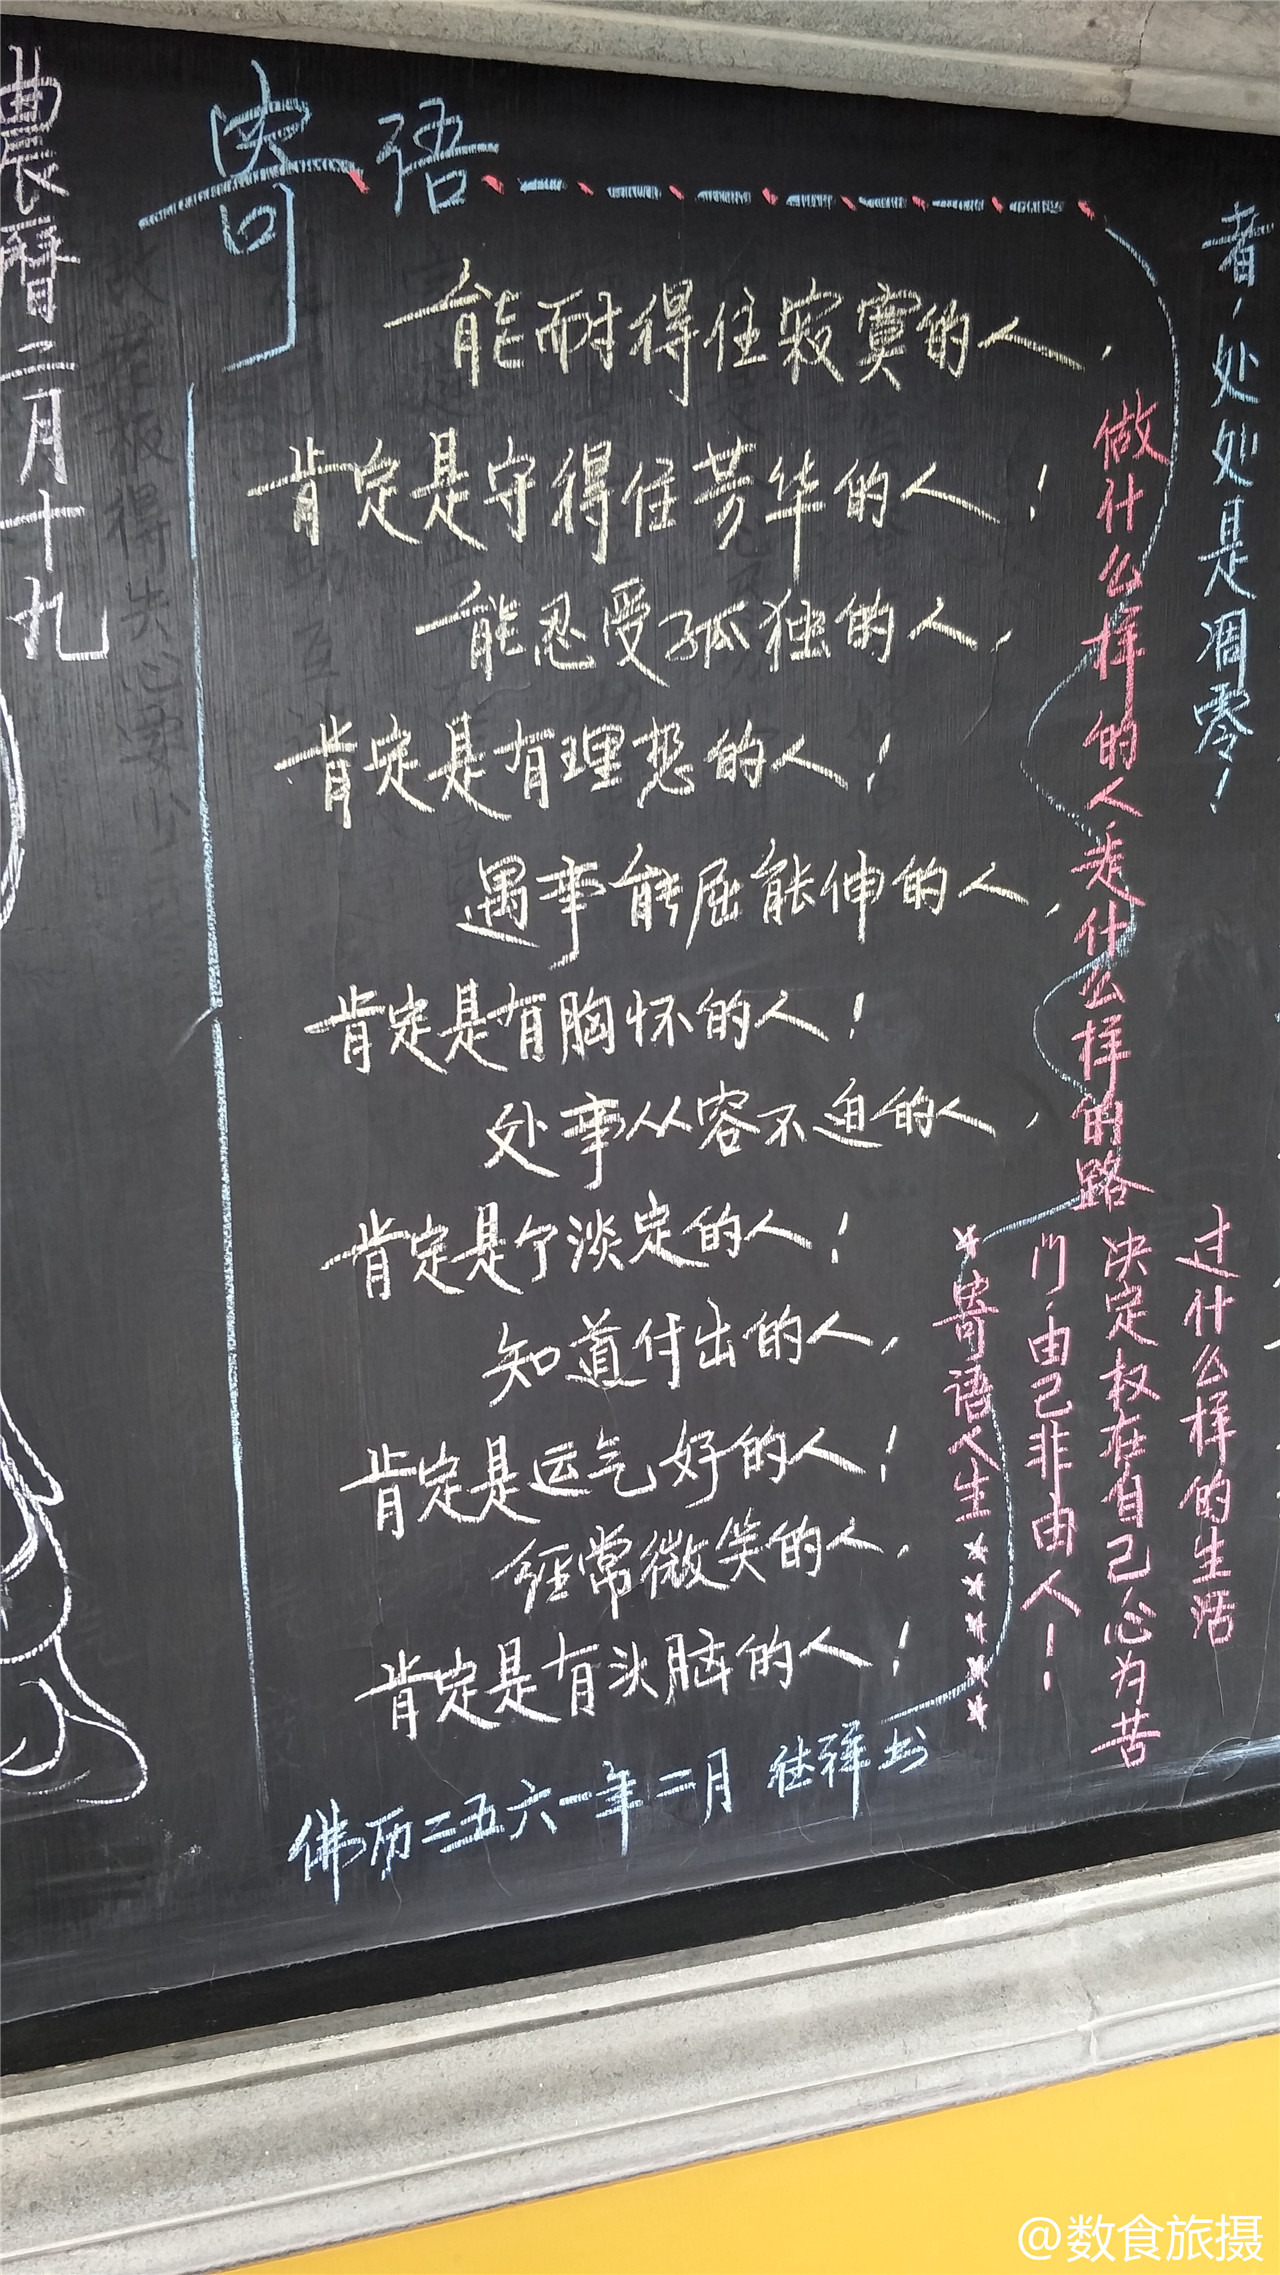 農曆二月十九
寄语
能耐得住寂寞的人,
肯定是守得住芳华的人!
能忍受孤独的人,
肯定是有理想的人!
遇事能屈能伸的人,
肯定是有胸怀的人!
处事从容不迫的人,
肯定是个淡定的人!
知道付出的人,
肯定是运气好的人!
经常微笑的人,
肯定是有头脑的人!
佛历二五六一年二月
者,处处是凋零!
做什么样的人走什么样的路
过什么样的生活
决定权在自己,心为苦
门,由己非由人!
寄语人生
@数食旅摄